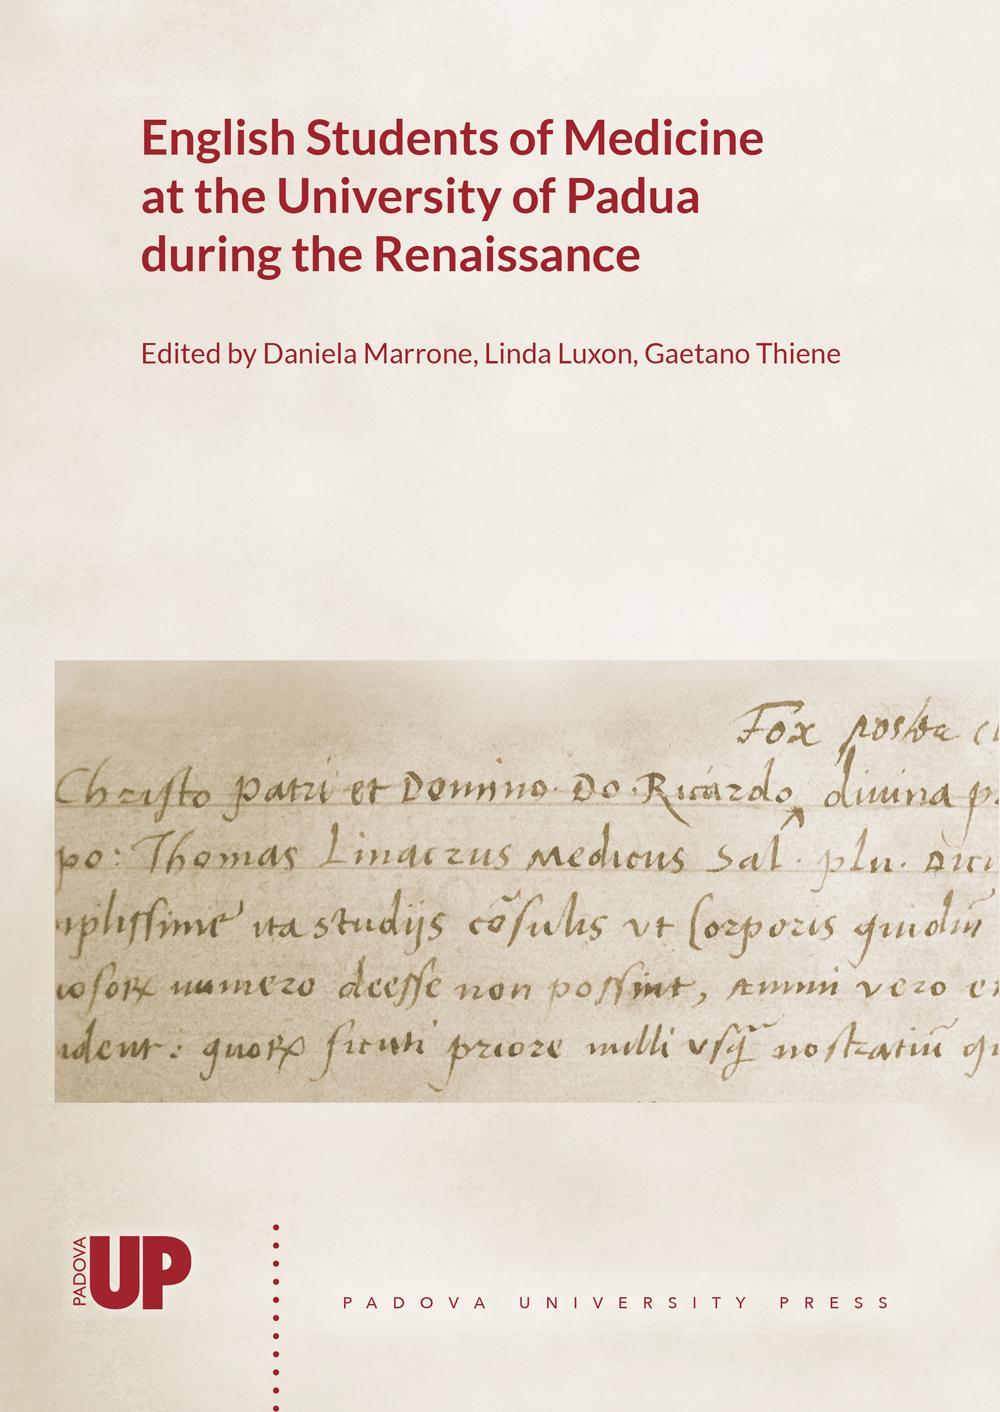 English Students of Medicine
at the University of Padua
during the Renaissance
Edited by Daniela Marrone, Linda Luxon, Gaetano Thiene
Fox
Christo patri et Domino Do. Ricardo divina p
po: Thomas Linacrus Medicus Sal. plu.
ita studijs cõsulis vt Corporis
numero deesse non possint, animi vero
ident: quorꝝ sicuti priore nulli vsq̃ nostratiũ
PADOVA
UP
PADOVA UNIVERSITY PRESS